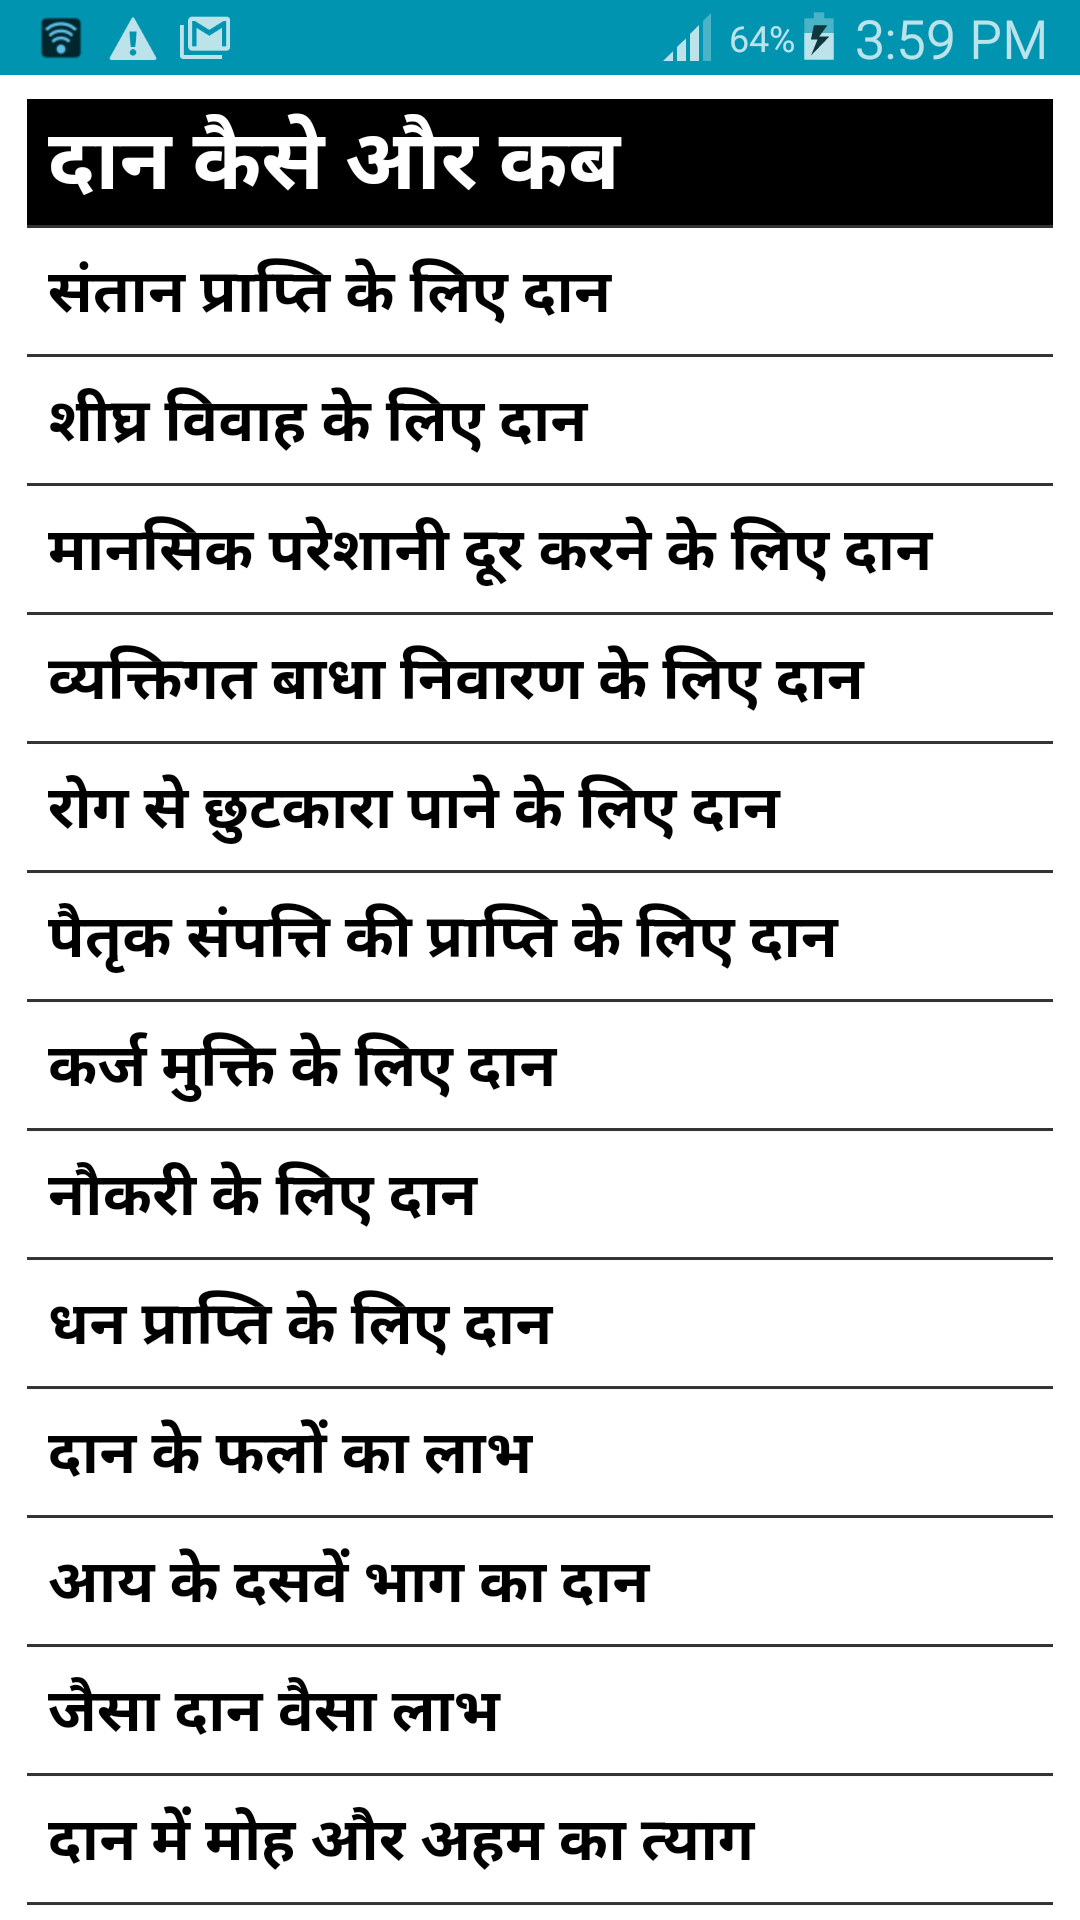 64% 3:59 PM
दान कैसे और कब
संतान प्राप्ति के लिए दान
शीघ्र विवाह के लिए दान
मानसिक परेशानी दूर करने के लिए दान
व्यक्तिगत बाधा निवारण के लिए दान
रोग से छुटकारा पाने के लिए दान
पैतृक संपत्ति की प्राप्ति के लिए दान
कर्ज मुक्ति के लिए दान
नौकरी के लिए दान
धन प्राप्ति के लिए दान
दान के फलों का लाभ
आय के दसवें भाग का दान
जैसा दान वैसा लाभ
दान में मोह और अहम का त्याग